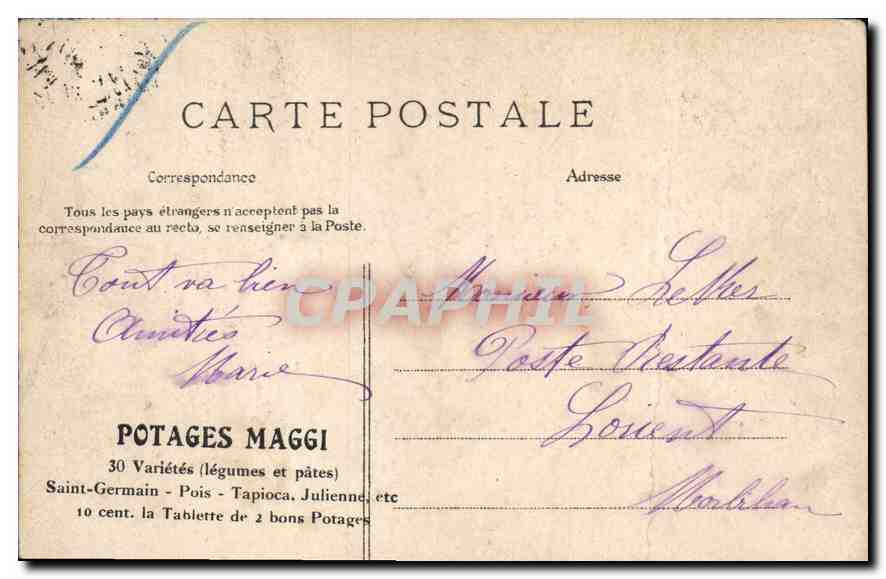 CARTE POSTALE
Correspondance
Adresse
Tous les pays étrangers n'acceptent pas la
correspondance au recto, se renseigner à la Poste.
Tout va bien
Amitiés
Marie
POTAGES MAGGI
30 Variétés (légumes et pâtes)
Saint-Germain - Pois - Tapioca, Julienne, etc
10 cent. la Tablette de 2 bons Potages
Monsieur
Poste Restante
Lorient
Morbihan
CPAPHIL